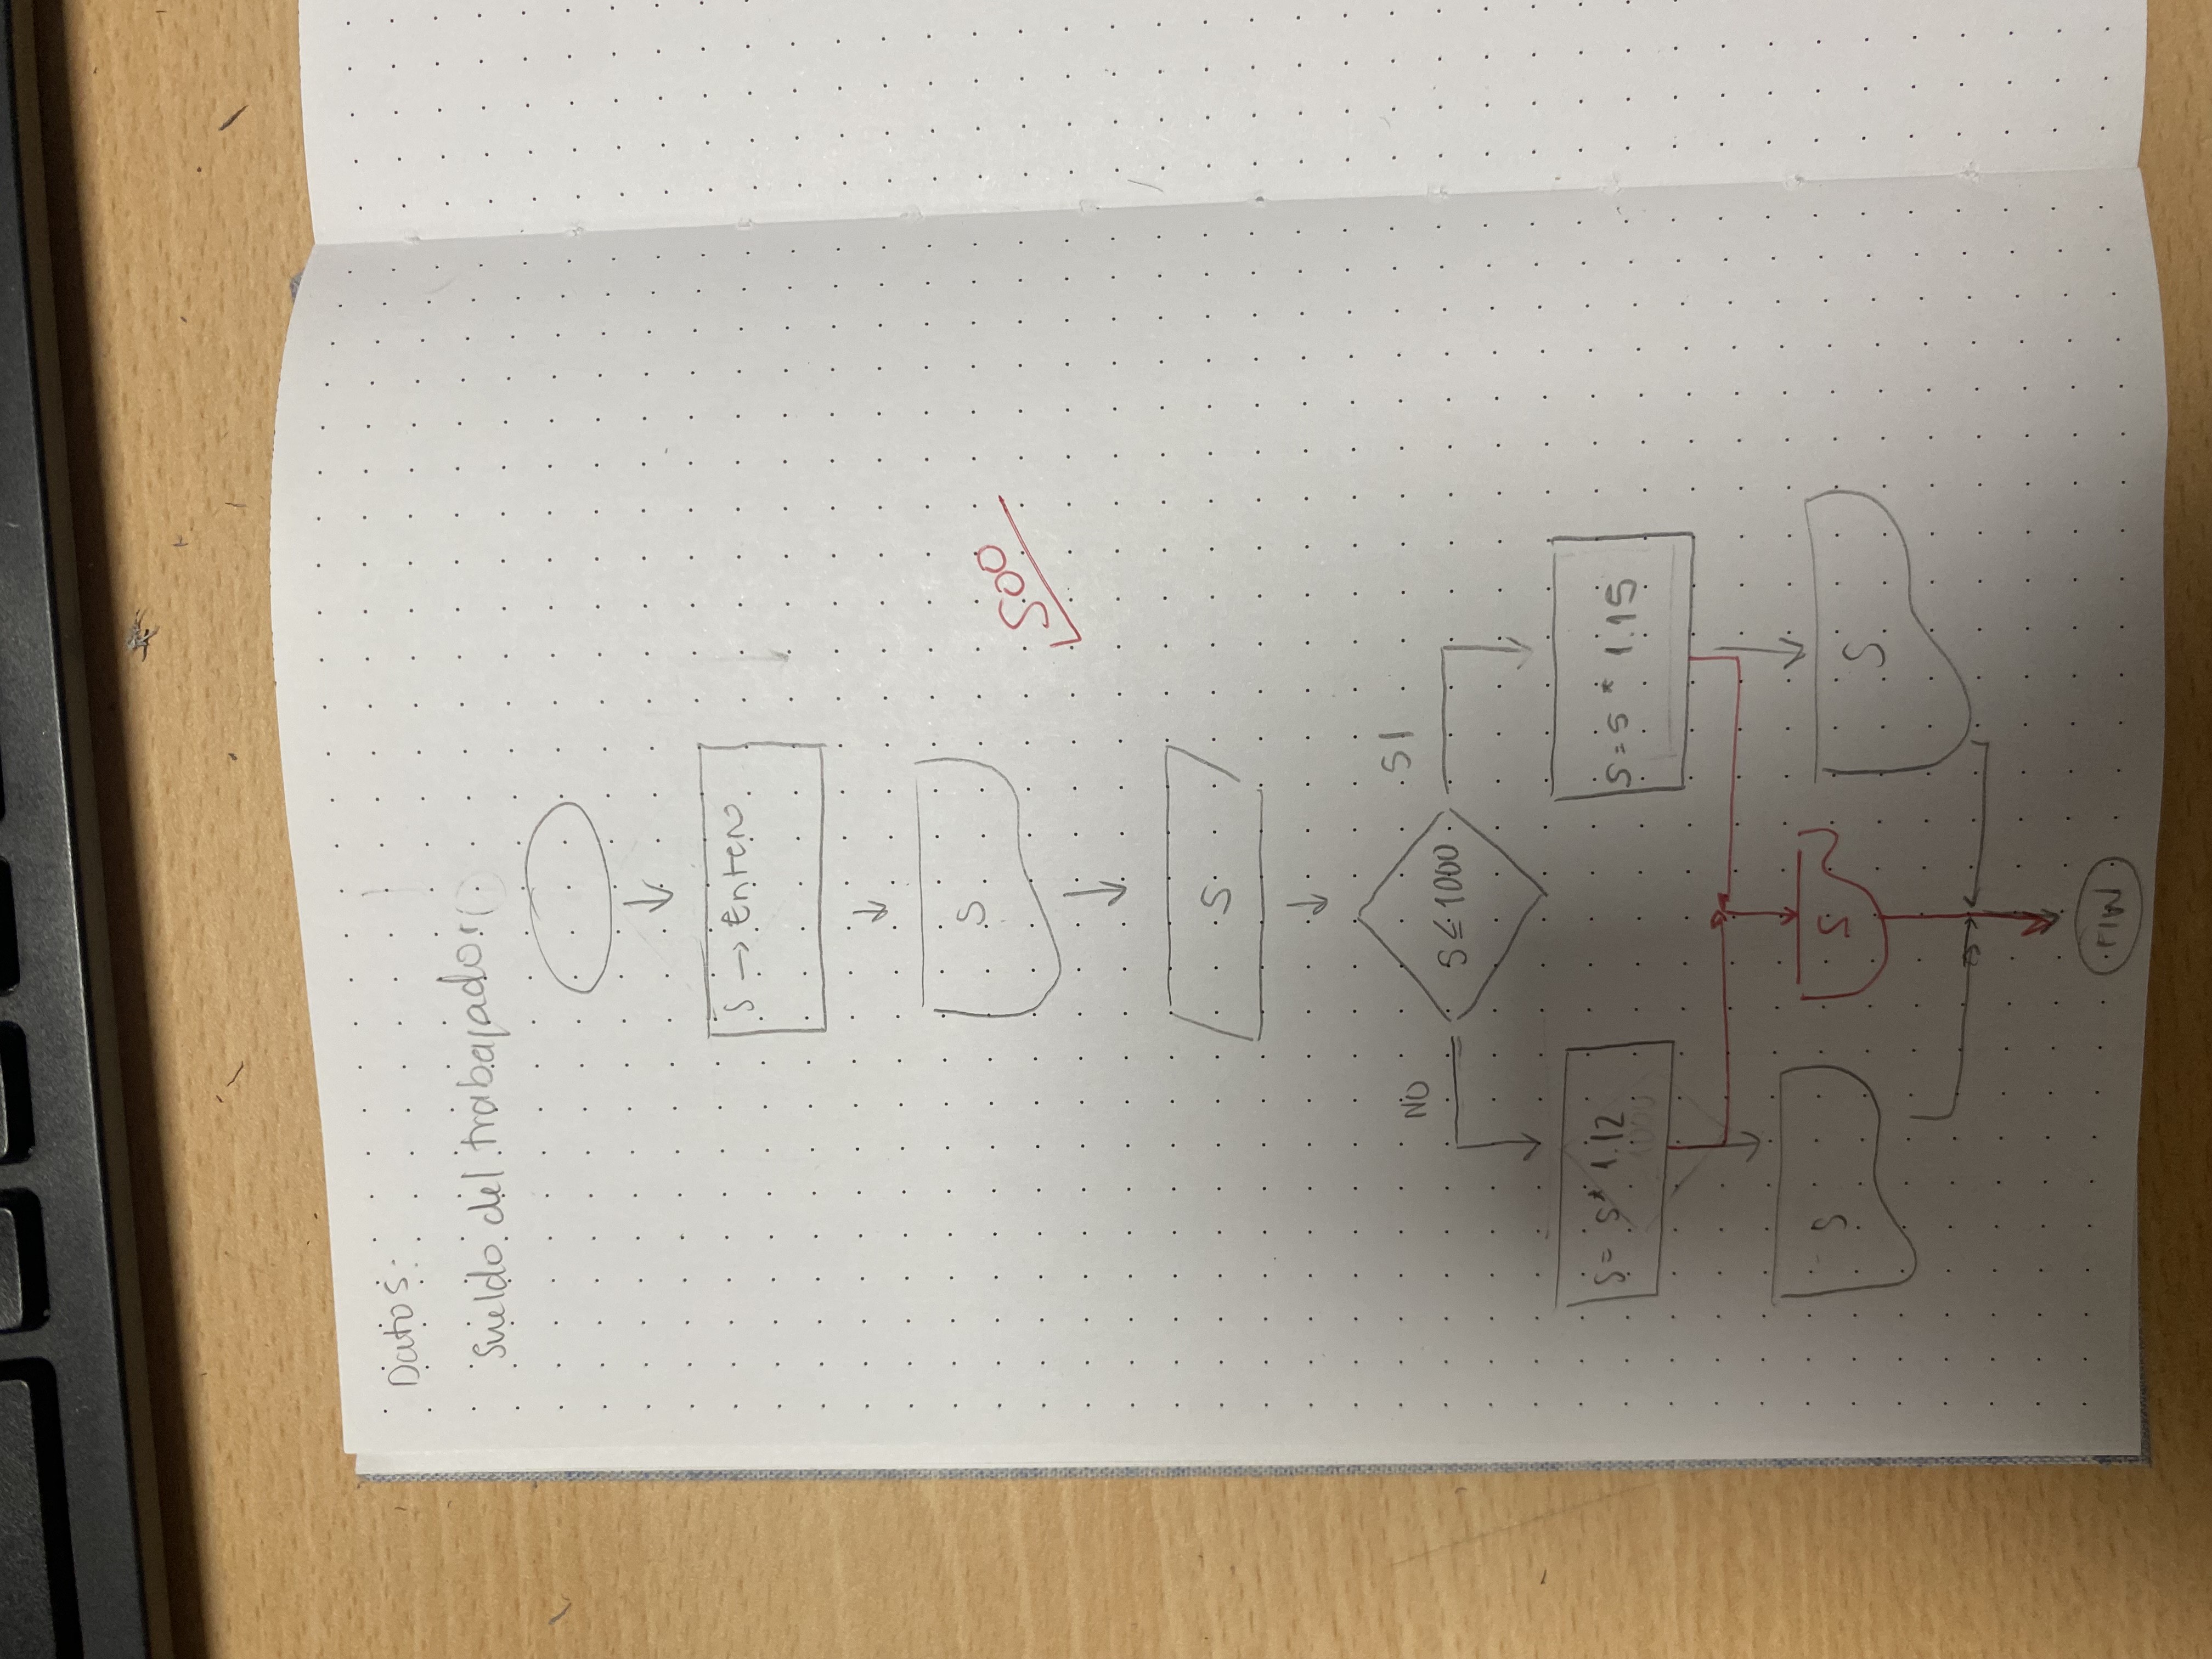 Datos:
Sueldo del trabajador
S → Entero
S
500
S
NO
SI
S ≤ 1000
S = S * 1.12
S = S * 1.15
S
S
S
FIN